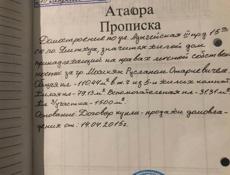 Атаора
Прописка
Домостроение по ул. Аџынџьская под 15
значится жилой дом
принадлежащий на правах личной собствен
ности за гр. Русланом Отаровичем.
Общая пл - 110,44 м² в т.ч. из 5-и жилых комнат
Жилая пл - 79.13 м. Вспомогательная пл - 31.31 м²
Пл. З/участка - 1500 м².
Основание: Договор купли-продажи домовла
дения от: 14.04.2015г.